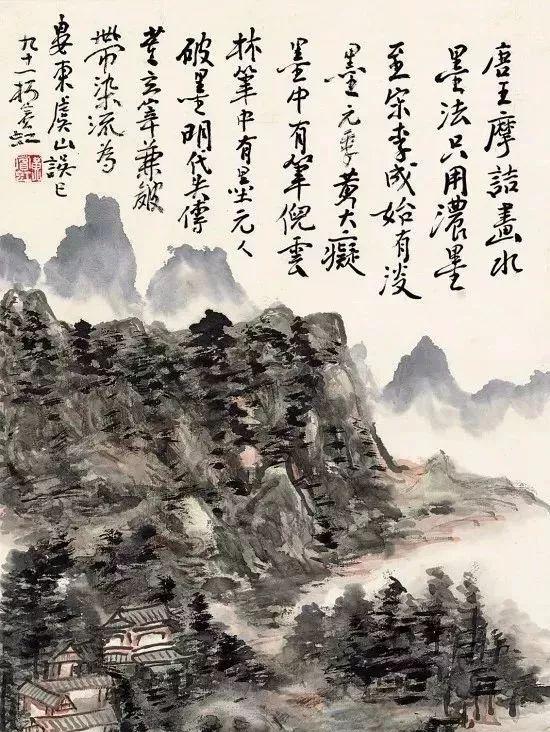 唐王摩詰畫水
墨法只用濃墨
至宋李成始有淡
墨元季黃大癡
墨中有筆倪雲
林筆中有墨元人
破墨明代失傳
董玄宰兼皴
帶染流為
婁東虞山誤已
九十一賓虹